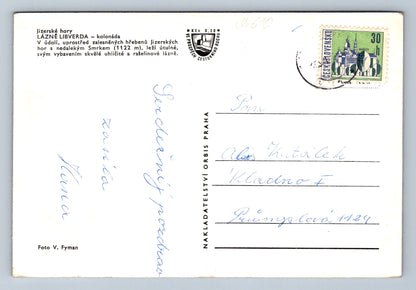 Jizerské hory
LÁZNĚ LIBVERDA – kolonáda
V údolí, uprostřed zalesněných hřebenů Jizerských
hor s nedalekým Smrkem (1122 m), leží útulné,
svým vybavením skvělé uhličité a rašelinové lázně.
Kčs 0,50
ČESKOSLOVENSKO
30
Srdečný pozdrav
zasílá
Hana
Pan
Kladno I
Průmyslová 1124
NAKLADATELSTVÍ ORBIS PRAHA
Foto V. Fyman